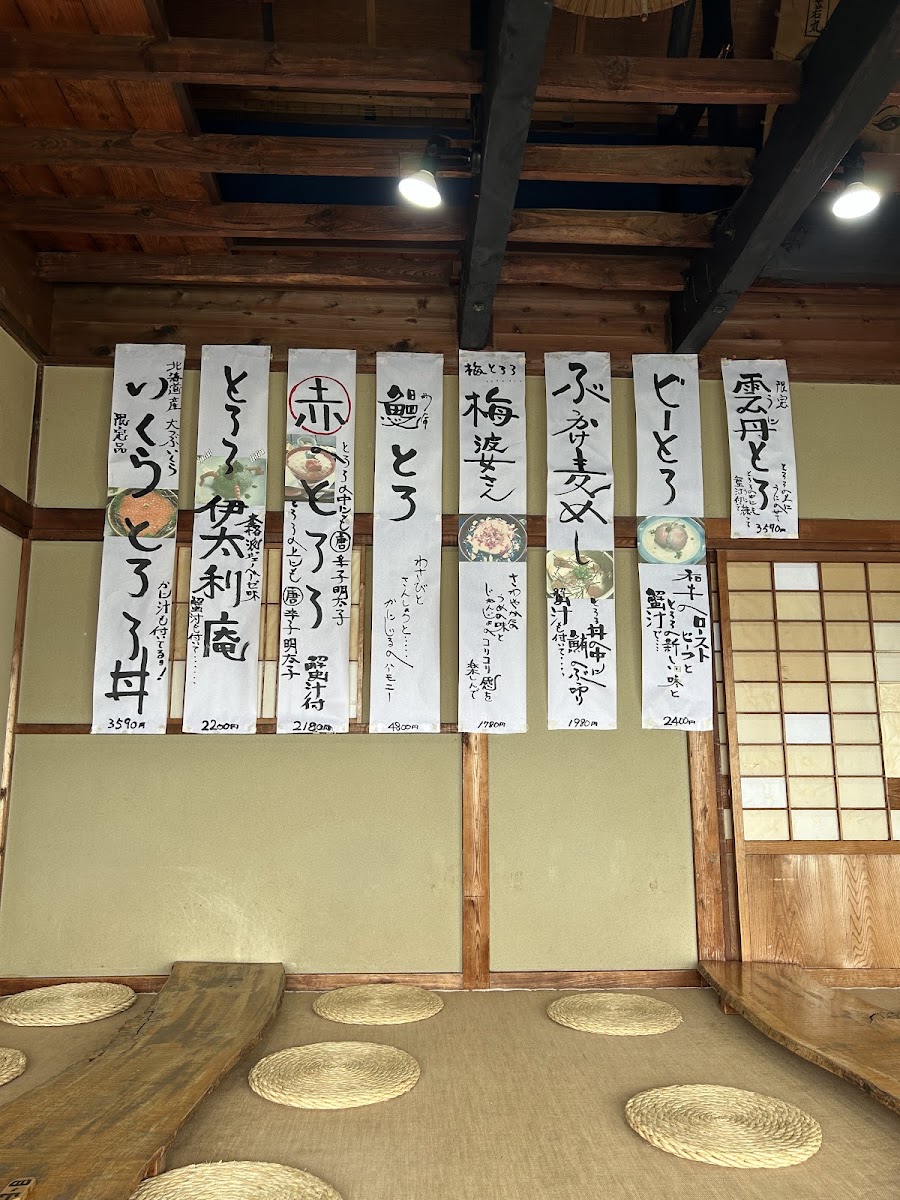 限定
雲丹とろ
とろろの上に
うにのせて
蟹汁付いて
3590円
ビーとろ
和牛の
ロースト
ビーフと
とろろの新しい味と
蟹汁で…
2400円
ぶっかけ麦めし
とろろ丼の中に
鮪のぶつ切り
蟹汁も付いて……
1980円
梅とろろ
梅波女さん
さわやかな
うめの味と
じゃんじゃのコリコリ感を
楽しんで
1780円
鰻とろ
わさびと
さんしょうと……
かにじるのハーモニー
4800円
赤のとろろ
とろろの中にも唐辛子明太子
とろろの上にも唐辛子明太子
蟹汁付
2180円
とろろ伊太利庵
本格派ジェノベーゼ味
蟹汁も付いて……
2200円
北海道産 大つぶいくら
いくらとろろ丼
限定品
かに汁も付いてるョ!
3590円